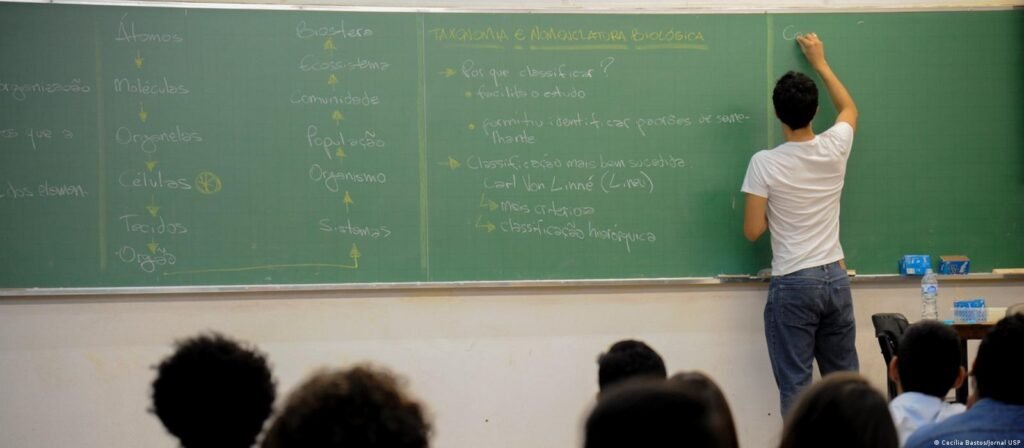 organização
es que a
dos elemen.
Átomos
Moléculas
Organelas
Células
Tecidos
Órgão
Biosfera
Ecossistema
Comunidade
População
Organismo
Sistemas
TAXONOMIA E NOMENCLATURA BIOLÓGICA
Por que classificar?
facilita o estudo
permitiu identificar padrões de seme-
lhante
Classificação mais bem sucedida
Carl Von Linné (Lineu)
mais critérios
classificação hierárquica
© Cecília Bastos/Jornal USP